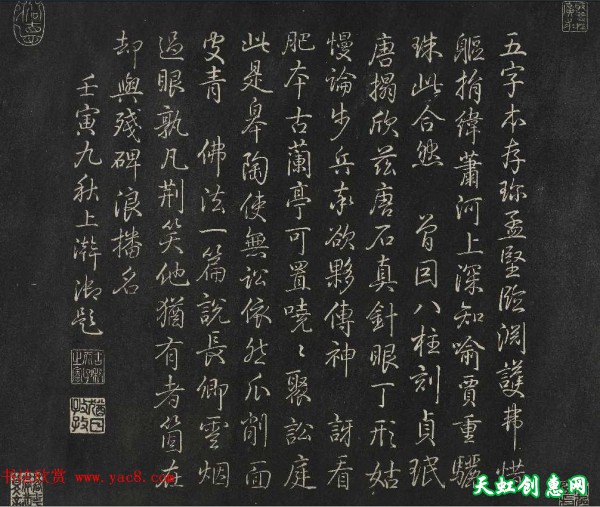 五字本存珎孟堅臨渊護弗惜
軀揹緯蕭河上深知喻賈重驪
珠此合然 曾回八柱刻貞珉
唐搨欣兹唐石真針眼丁形姑
慢論步兵亦欲夥傳神 訝看
肥本古蘭亭可置嘵〻聚訟庭
此是皋陶使無訟依然瓜削面
雯青 佛法一篇說長卿雲烟
過眼孰凡荆笑他猶有者箇在
却與殘碑浪播名
壬寅九秋上澣御題
书法欣赏 www.yac8.com
天虹创意网